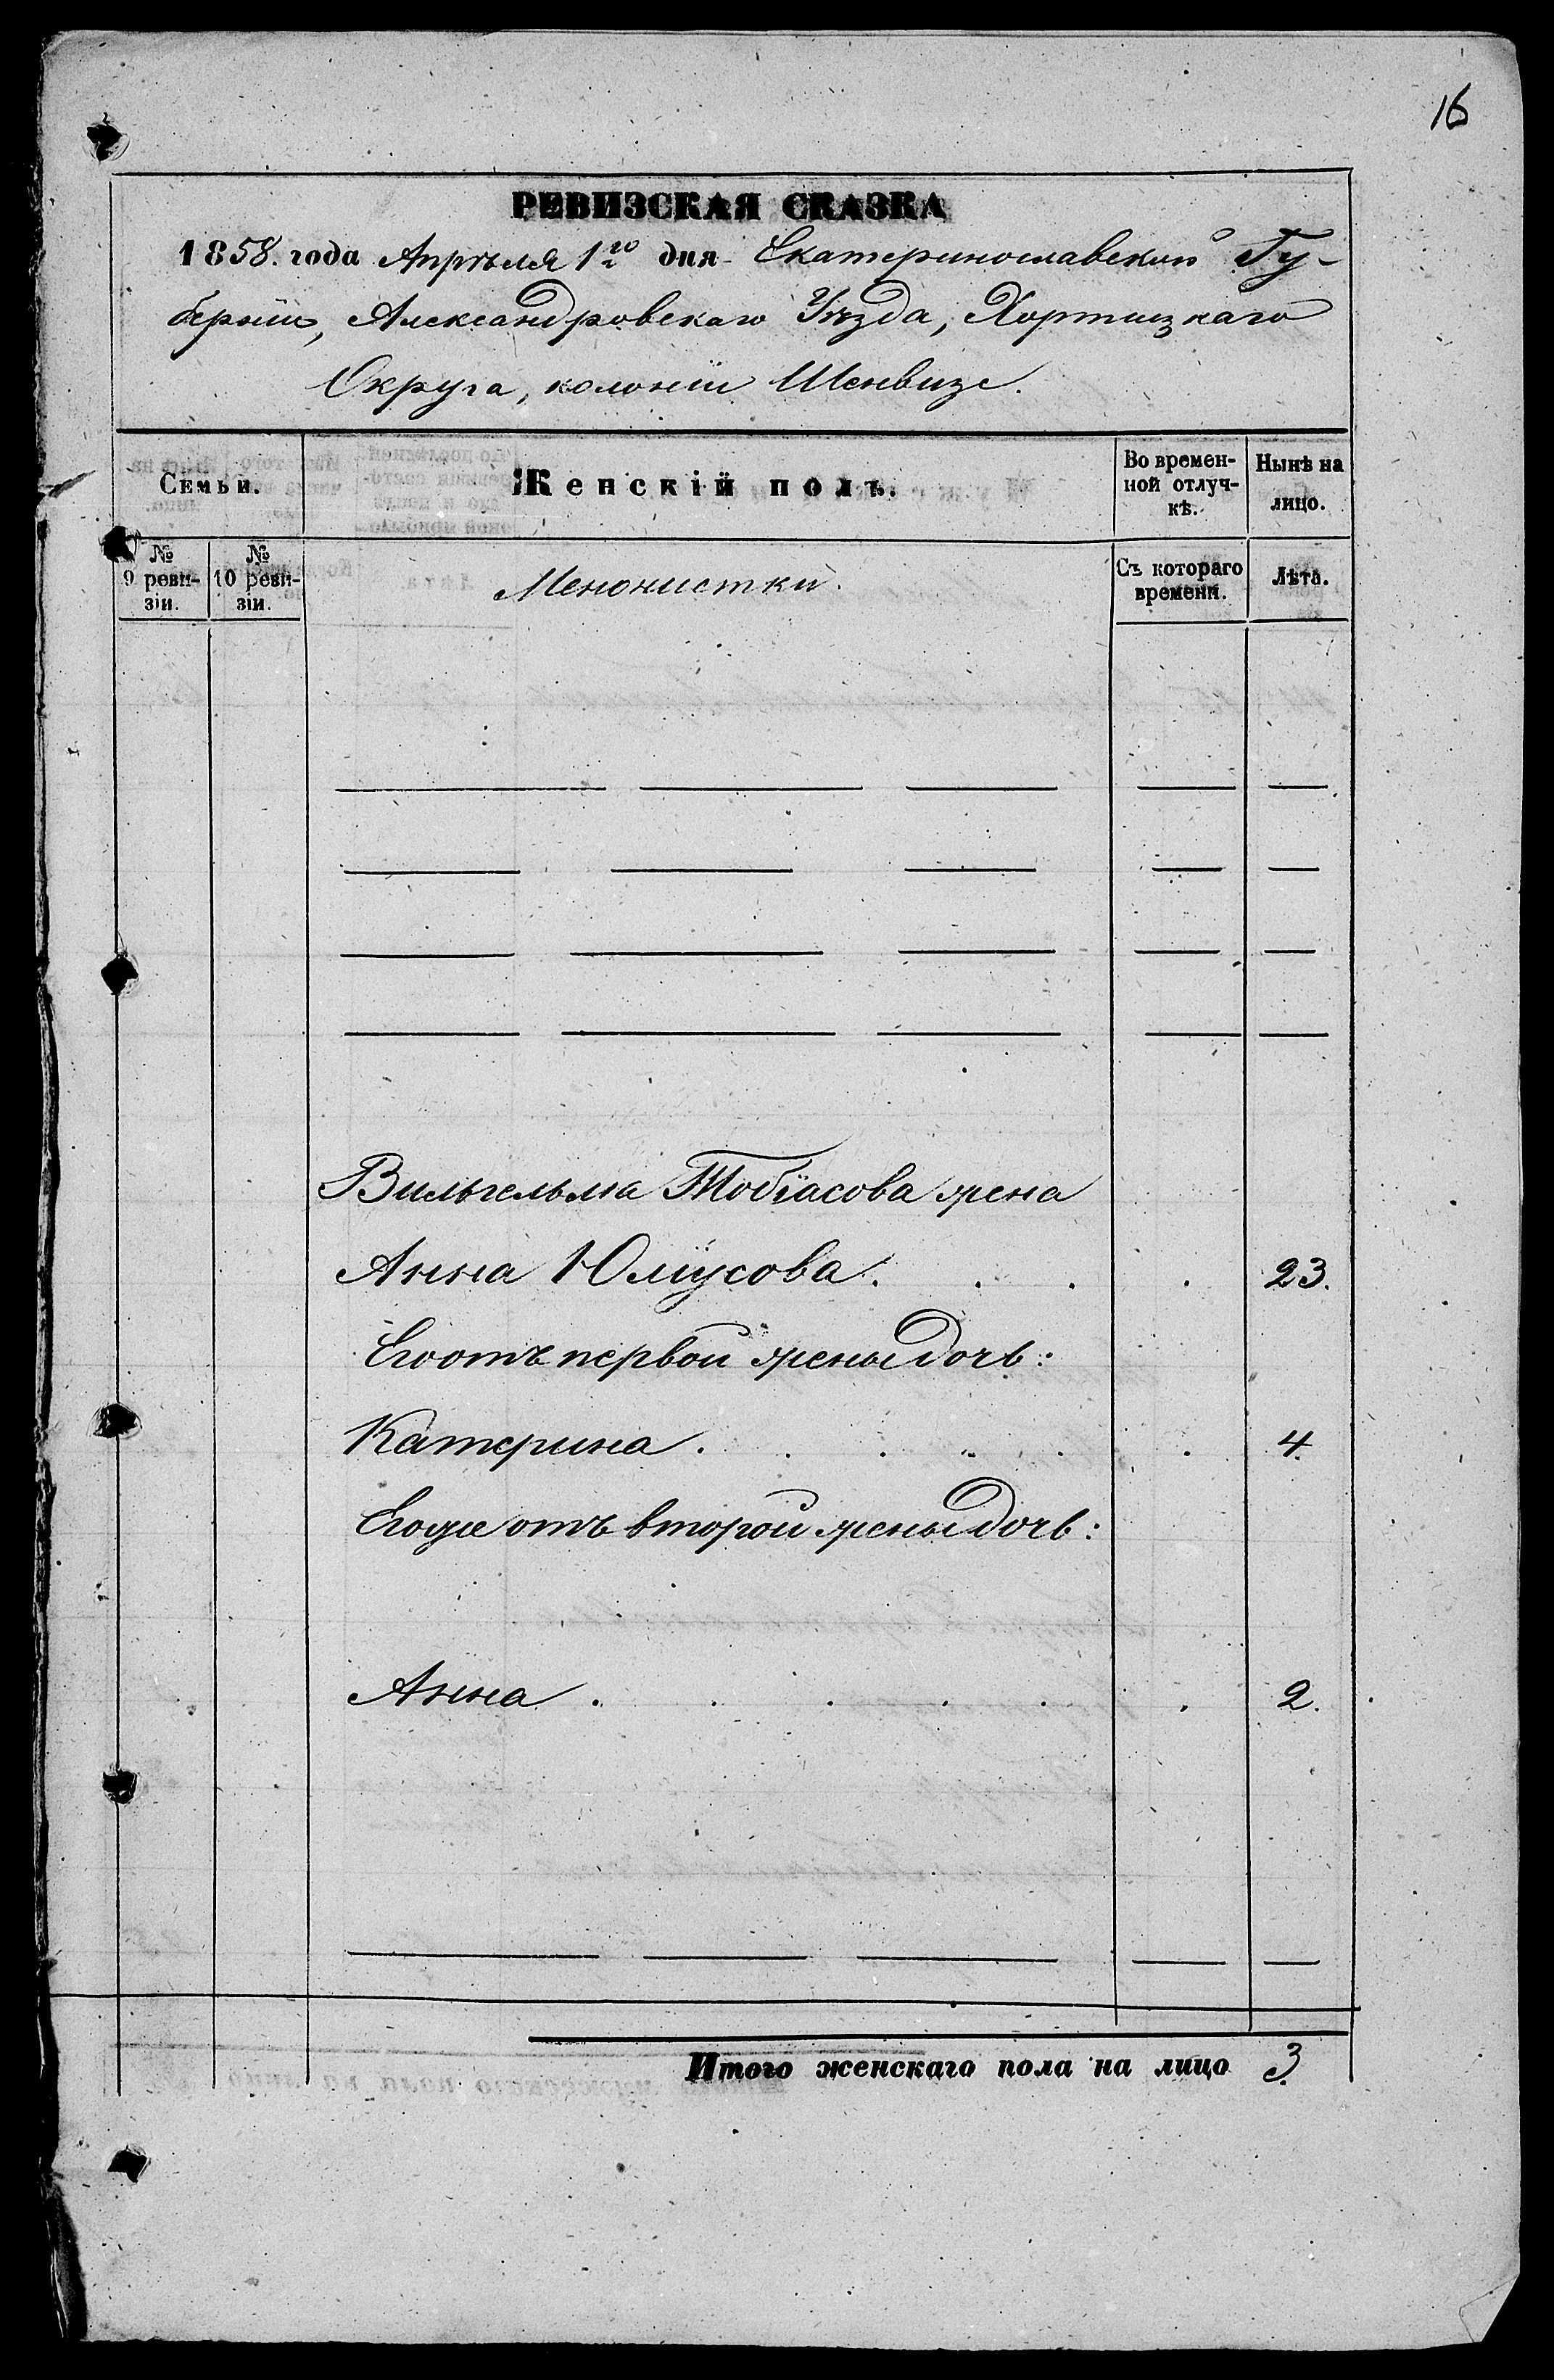 16
РЕВИЗСКАЯ СКАЗКА
1858. года Апрѣля 1го дня Екатеринославской Гу-
берніи, Александровскаго Уѣзда, Хортицкаго
Округа, колоніи Шенвизе.
Семьи.
Женскій полъ.
Во времен-
ной отлуч-
кѣ.
Нынѣ на
лицо.
№
9 реви-
зіи.
№
10 реви-
зіи.
Менонистки.
Съ котораго
времени.
Лѣта.
Вильгельма Тобіасова жена
Анна Юліусова. . . . 23.
Его отъ первой жены дочь:
Катерина . . . . . 4.
Егоже отъ второй жены дочь:
Анна . . . . . . 2.
Итого женскаго пола на лицо 3.